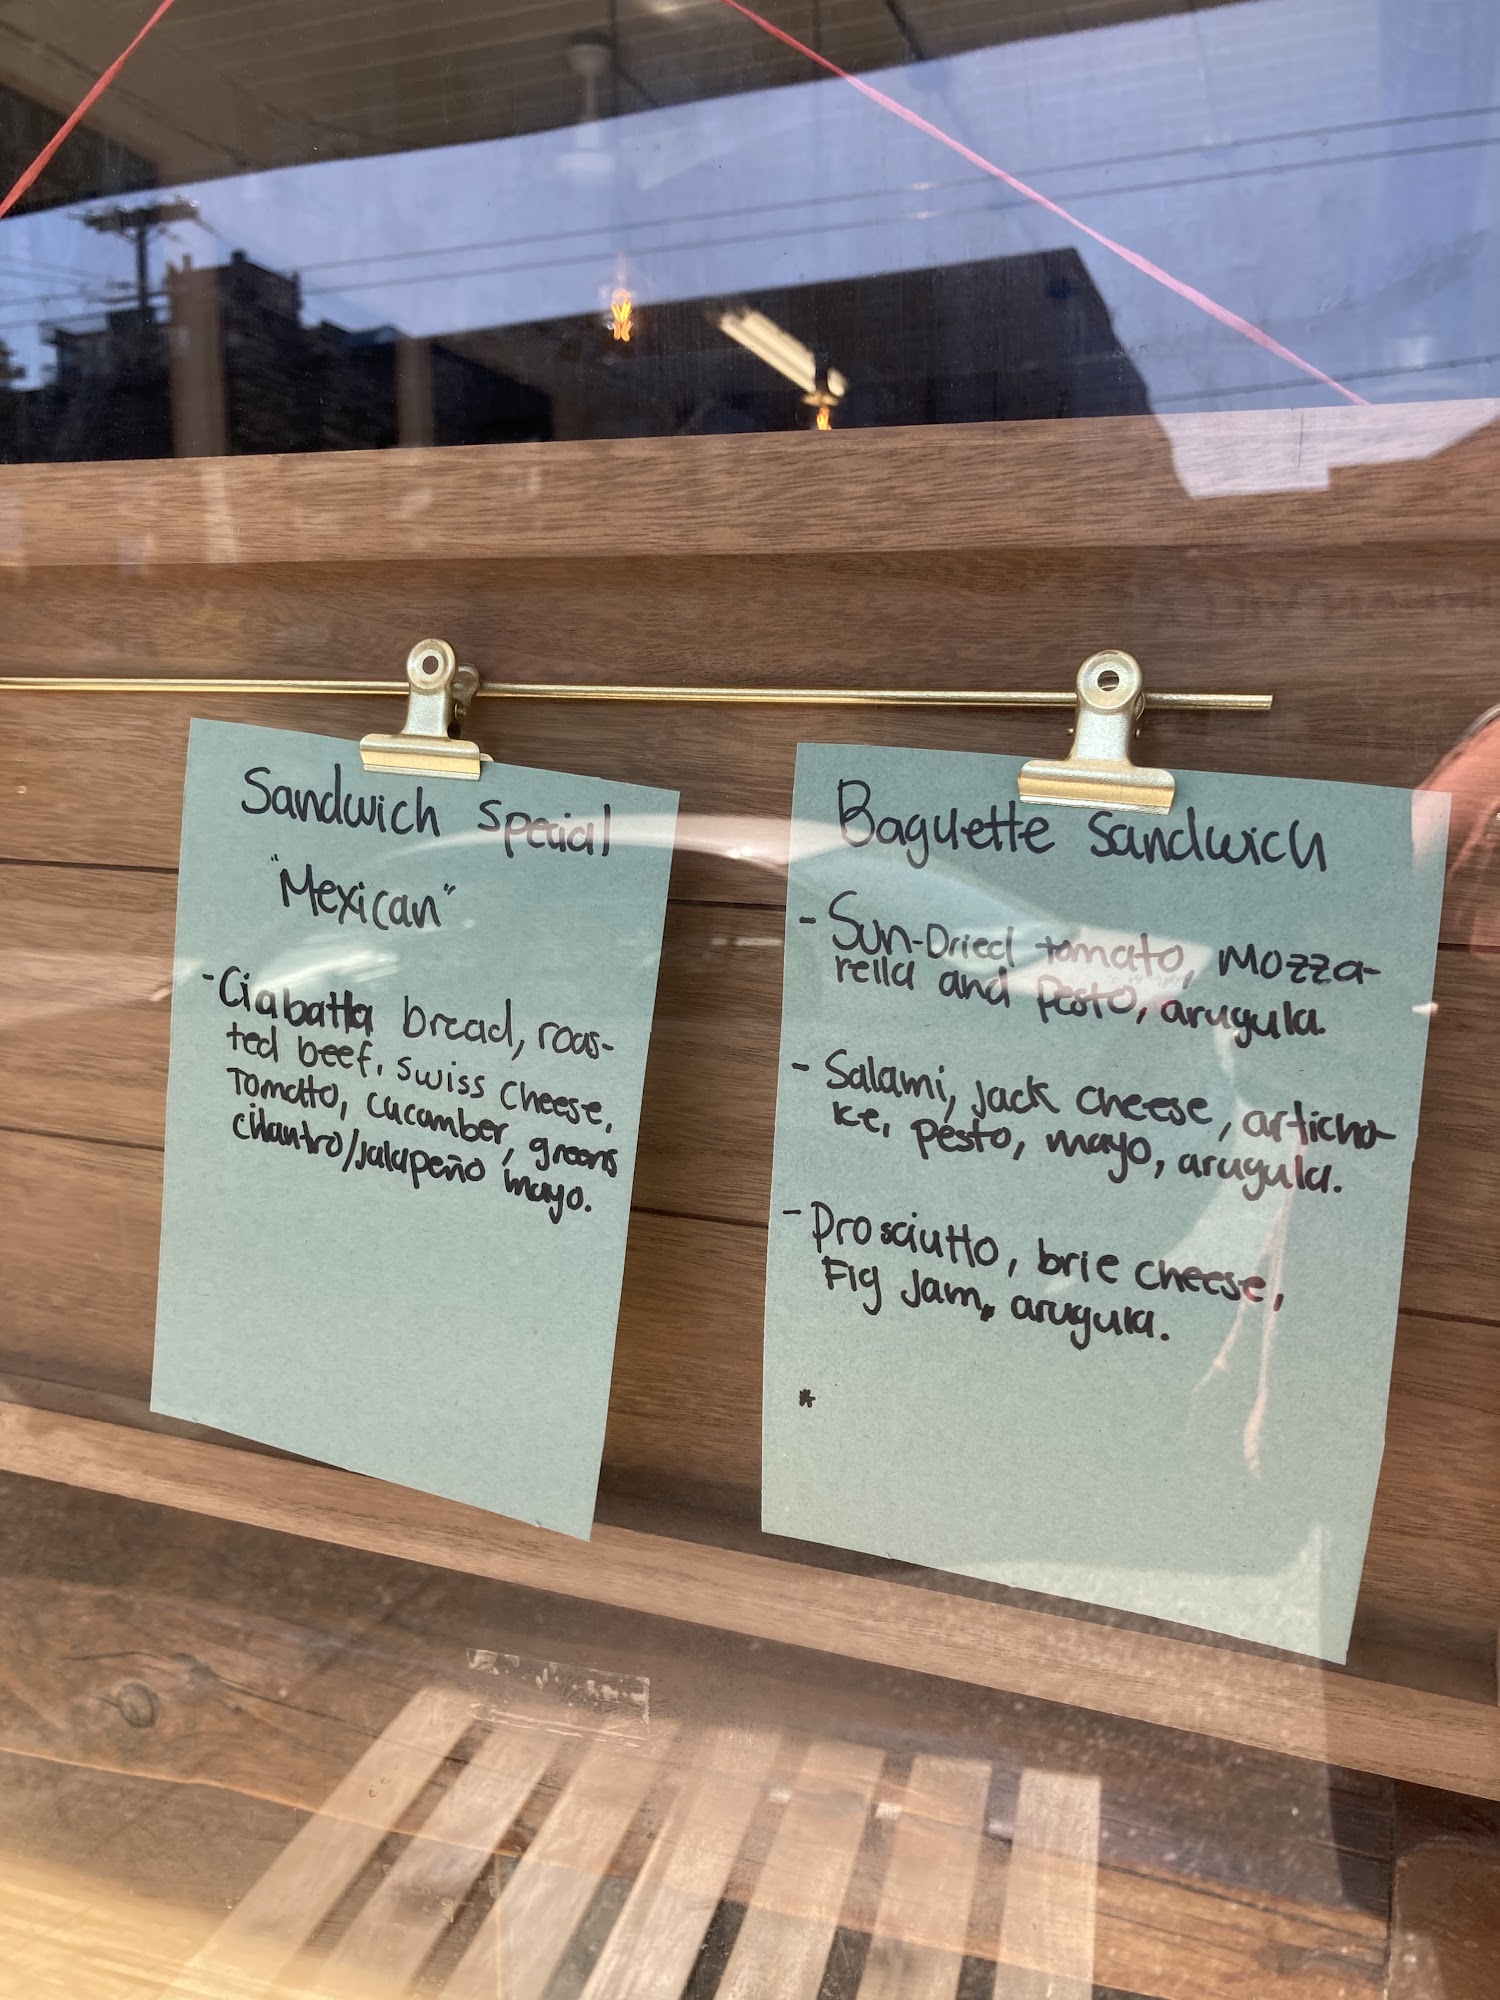 Sandwich special
"Mexican"
- Ciabatta bread, roas-
ted beef, swiss cheese,
Tomatto, cucamber, greens
cilantro/jalapeño mayo.
Baguette Sandwich
- Sun-Dried tomato, Mozza-
rella and Pesto, arugula.
- Salami, jack cheese, articho-
ke, pesto, mayo, arugula.
- Prosciutto, brie cheese,
Fig Jam, arugula.
*